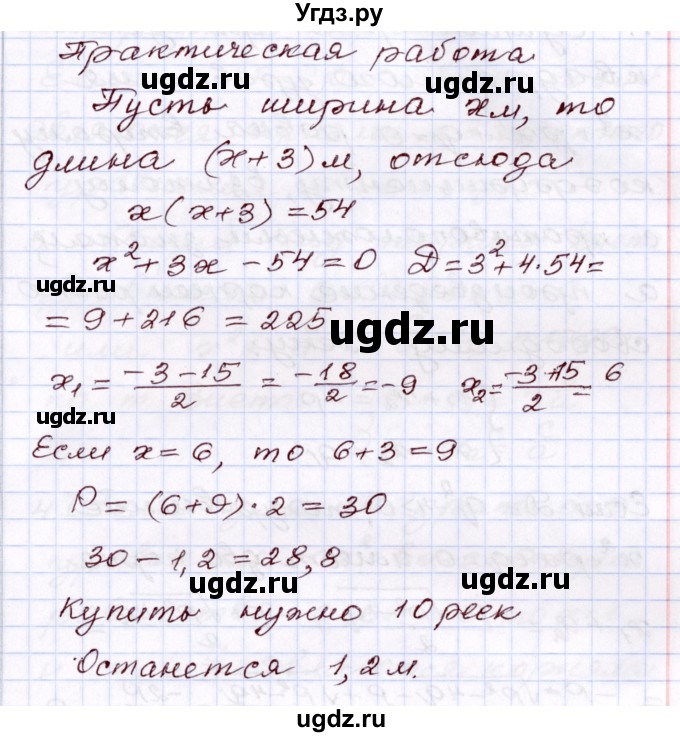 Угдз.ру
Практическая работа
ugdz.ru ugdz.ru
Пусть ширина xм, то
длина (x+3)м, отсюда
x(x+3)=54
x²+3x-54=0 Д=3²+4·54=
ugdz.ru
=9+216=225
ugdz.ru
x₁=(-3-15)/2=-18/2=-9 x₂=(-3+15)/2=6
ugdz.ru
Если x=6, то 6+3=9
P=(6+9)·2=30
30-1,2=28,8
ugdz.ru ugdz.ru
Купить нужно 10 реек
Останется 1,2м.
ugdz.ru